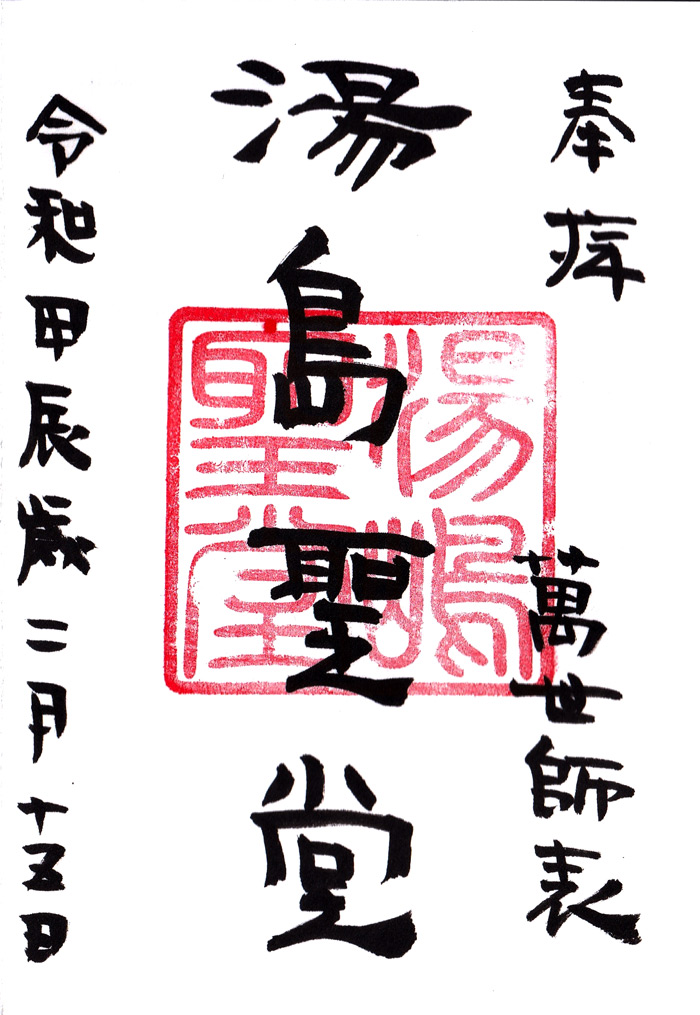 奉拝
萬世師表
湯島聖堂
湯嶋聖堂
令和甲辰歳二月十五日